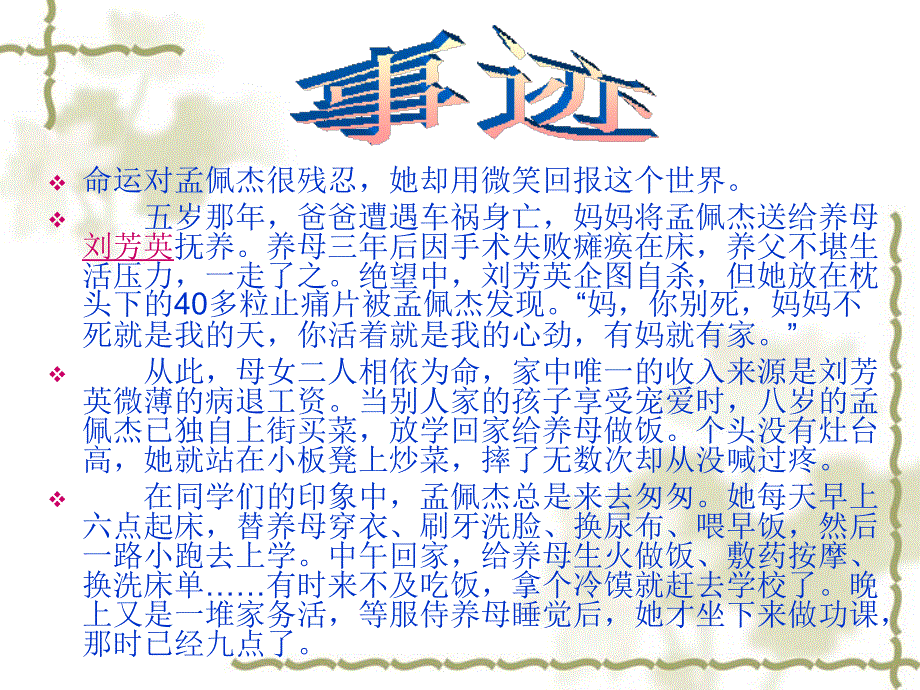 事迹
命运对孟佩杰很残忍，她却用微笑回报这个世界。
五岁那年，爸爸遭遇车祸身亡，妈妈将孟佩杰送给养母
刘芳英抚养。养母三年后因手术失败瘫痪在床，养父不堪生
活压力，一走了之。绝望中，刘芳英企图自杀，但她放在枕
头下的40多粒止痛片被孟佩杰发现。“妈，你别死，妈妈不
死就是我的天，你活着就是我的心劲，有妈就有家。”
从此，母女二人相依为命，家中唯一的收入来源是刘芳
英微薄的病退工资。当别人家的孩子享受宠爱时，八岁的孟
佩杰已独自上街买菜，放学回家给养母做饭。个头没有灶台
高，她就站在小板凳上炒菜，摔了无数次却从没喊过疼。
在同学们的印象中，孟佩杰总是来去匆匆。她每天早上
六点起床，替养母穿衣、刷牙洗脸、换尿布、喂早饭，然后
一路小跑去上学。中午回家，给养母生火做饭、敷药按摩、
换洗床单……有时来不及吃饭，拿个冷馍就赶去学校了。晚
上又是一堆家务活，等服侍养母睡觉后，她才坐下来做功课，
那时已经九点了。